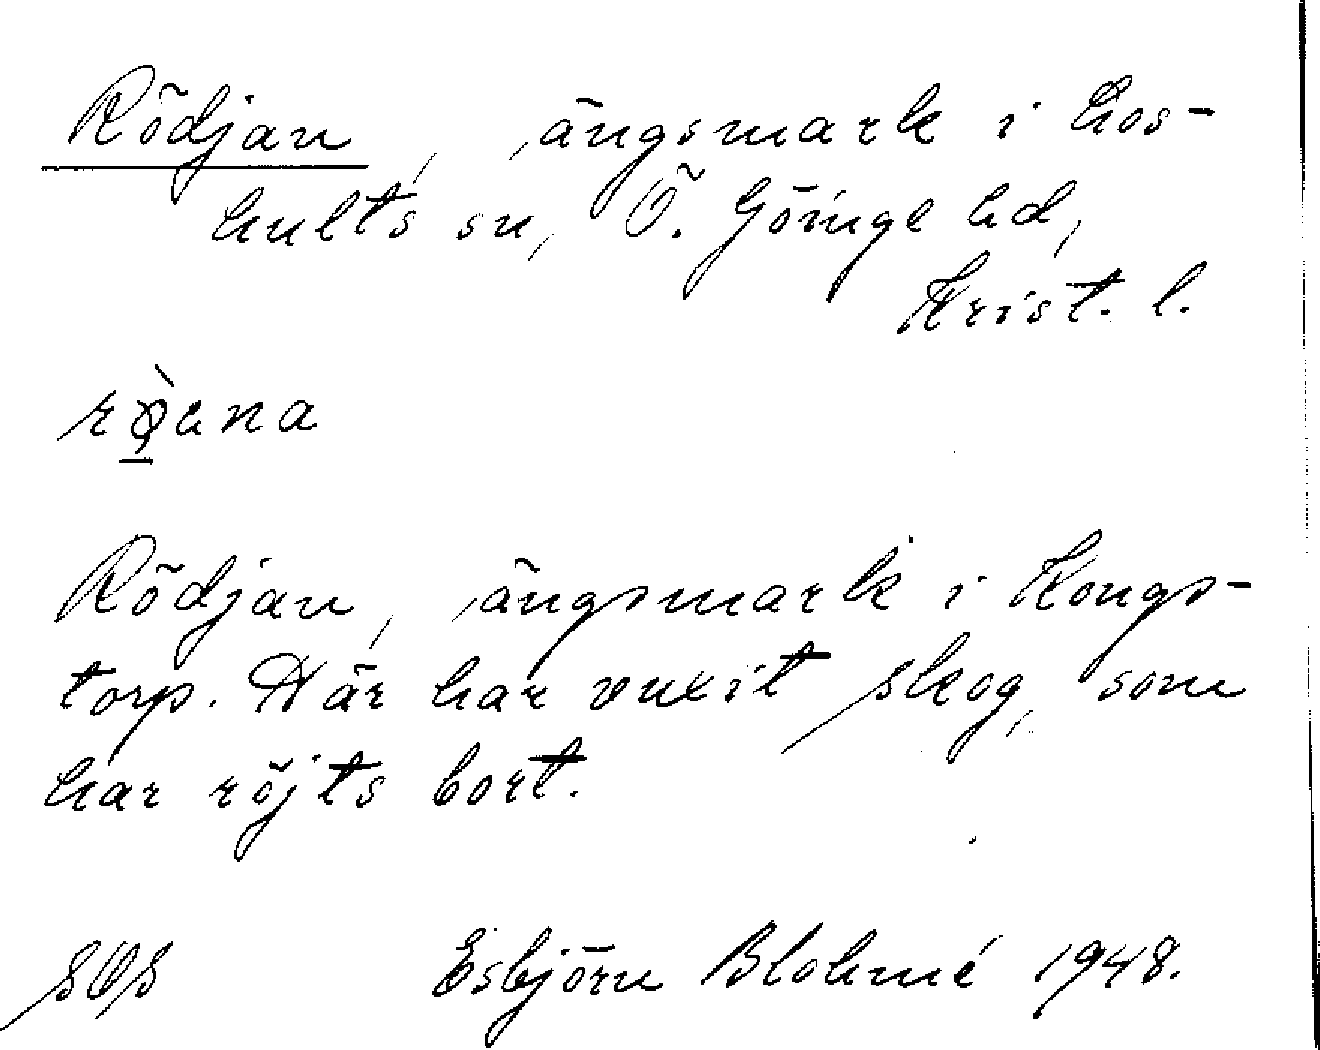 Rödjan, ängsmark i Los-
hults sn, Ö. Göinge hd,
Krist. l.
Rödjan, ängsmark i Kongs-
torp. Här har vuxit skog, som
har röjts bort.
SOS Esbjörn Blohmé 1948.